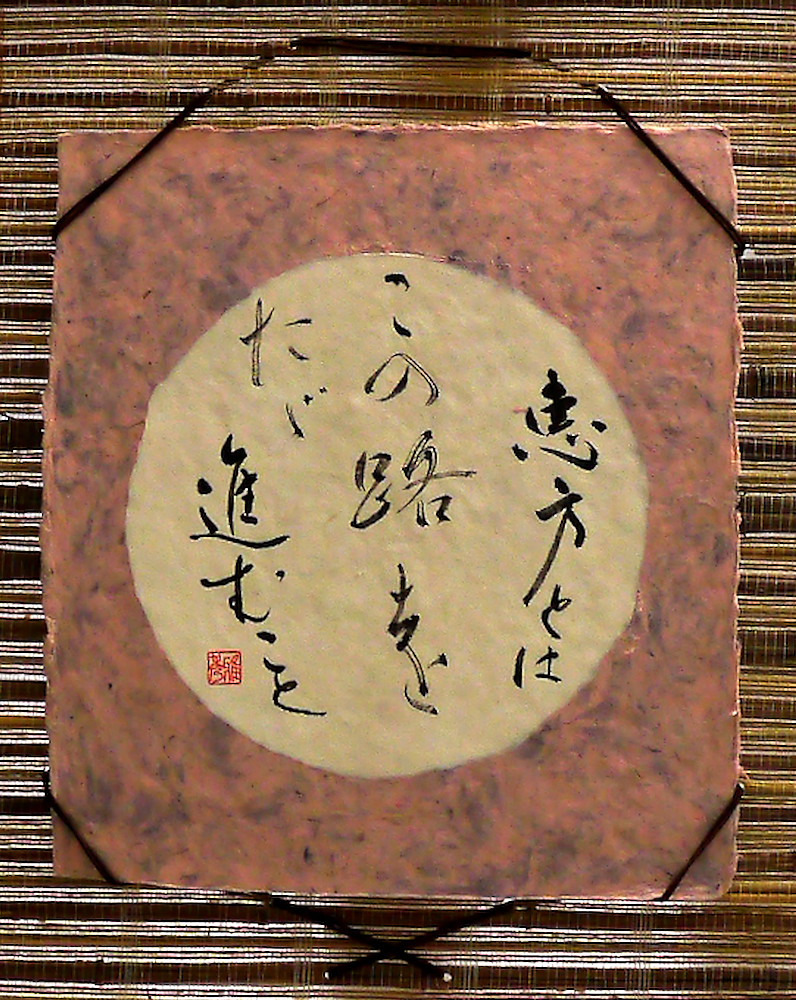 恵方とは
この路を
たゞ
進むこと